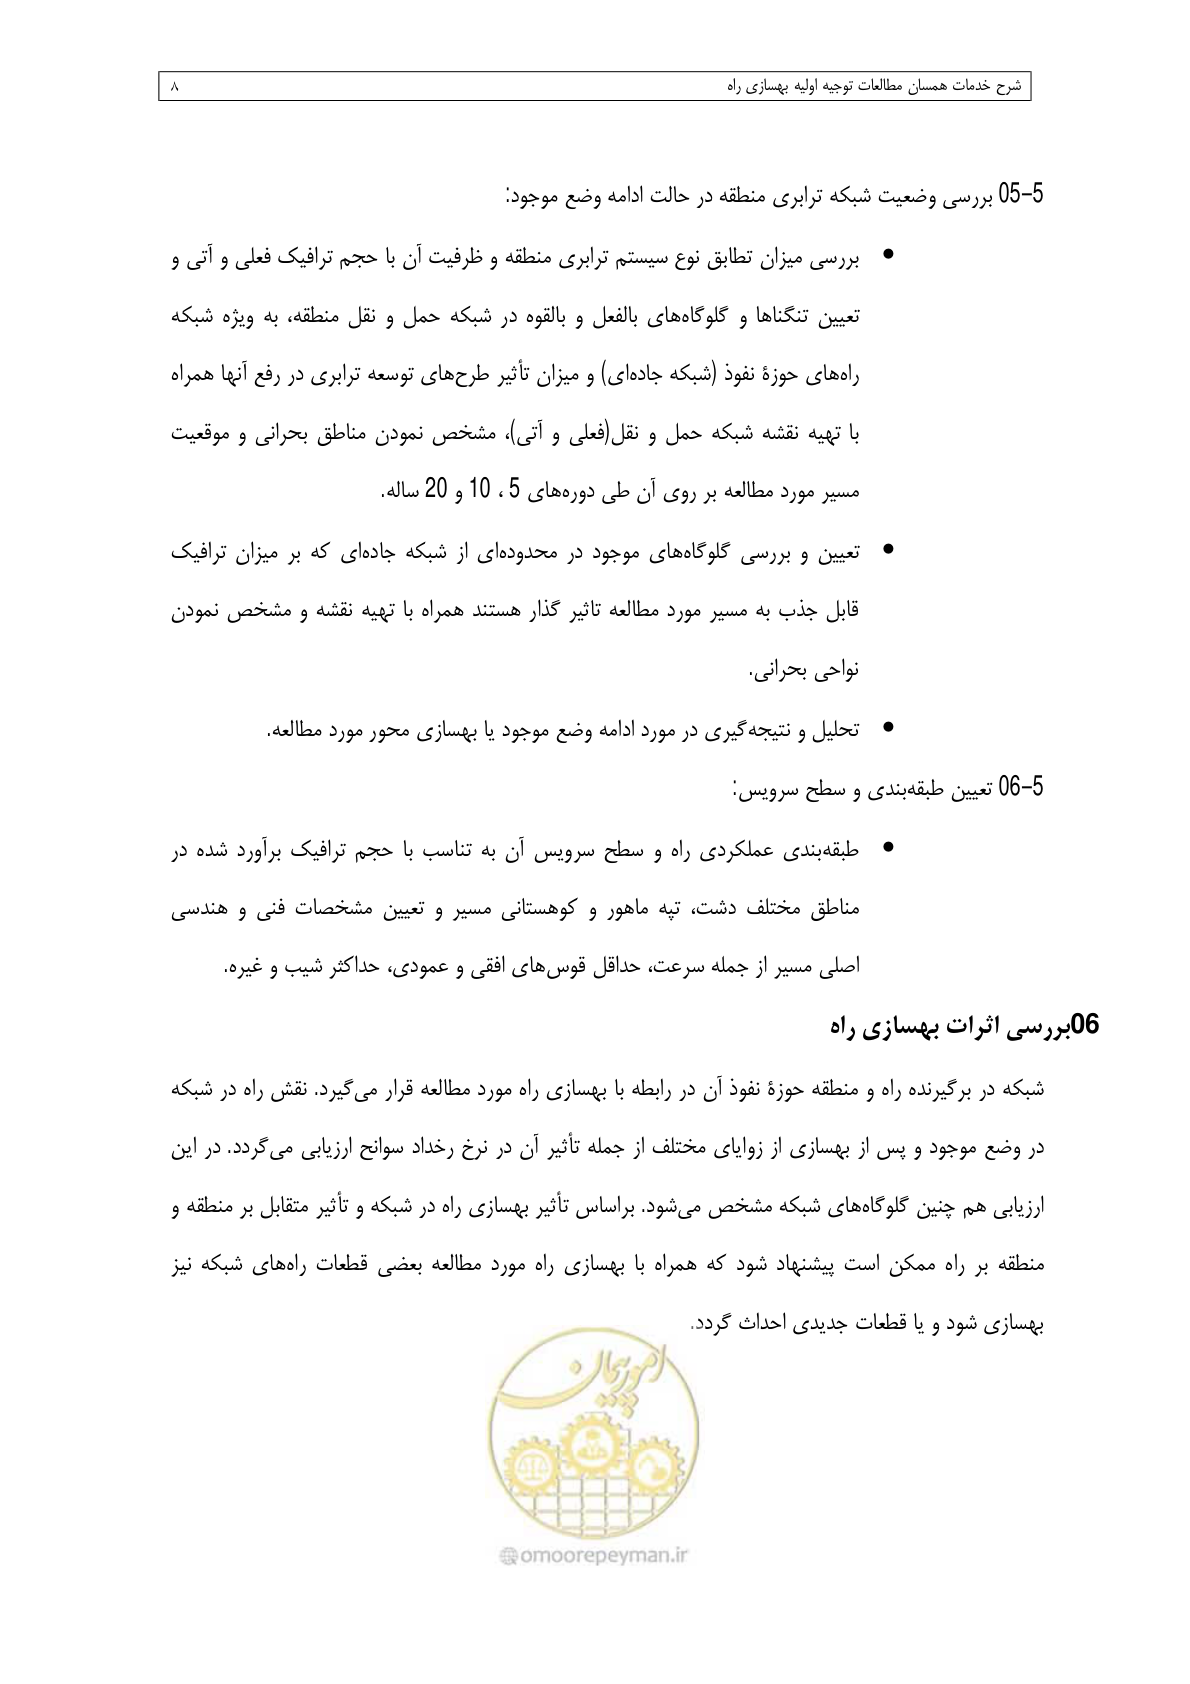 شرح خدمات همسان مطالعات توجیه اولیه بهسازی راه ۸
05–5 بررسی وضعیت شبکه ترابری منطقه در حالت ادامه وضع موجود:
● بررسی میزان تطابق نوع سیستم ترابری منطقه و ظرفیت آن با حجم ترافیک فعلی و آتی و
تعیین تنگناها و گلوگاه‌های بالفعل و بالقوه در شبکه حمل و نقل منطقه، به ویژه شبکه
راه‌های حوزهٔ نفوذ (شبکه جاده‌ای) و میزان تأثیر طرح‌های توسعه ترابری در رفع آنها همراه
با تهیه نقشه شبکه حمل و نقل(فعلی و آتی)، مشخص نمودن مناطق بحرانی و موقعیت
مسیر مورد مطالعه بر روی آن طی دوره‌های 5 ، 10 و 20 ساله.
● تعیین و بررسی گلوگاه‌های موجود در محدوده‌ای از شبکه جاده‌ای که بر میزان ترافیک
قابل جذب به مسیر مورد مطالعه تاثیر گذار هستند همراه با تهیه نقشه و مشخص نمودن
نواحی بحرانی.
● تحلیل و نتیجه‌گیری در مورد ادامه وضع موجود یا بهسازی محور مورد مطالعه.
06–5 تعیین طبقه‌بندی و سطح سرویس:
● طبقه‌بندی عملکردی راه و سطح سرویس آن به تناسب با حجم ترافیک برآورد شده در
مناطق مختلف دشت، تپه ماهور و کوهستانی مسیر و تعیین مشخصات فنی و هندسی
اصلی مسیر از جمله سرعت، حداقل قوس‌های افقی و عمودی، حداکثر شیب و غیره.
06بررسی اثرات بهسازی راه
شبکه در برگیرنده راه و منطقه حوزهٔ نفوذ آن در رابطه با بهسازی راه مورد مطالعه قرار می‌گیرد. نقش راه در شبکه
در وضع موجود و پس از بهسازی از زوایای مختلف از جمله تأثیر آن در نرخ رخداد سوانح ارزیابی می‌گردد. در این
ارزیابی هم چنین گلوگاه‌های شبکه مشخص می‌شود. براساس تأثیر بهسازی راه در شبکه و تأثیر متقابل بر منطقه و
منطقه بر راه ممکن است پیشنهاد شود که همراه با بهسازی راه مورد مطالعه بعضی قطعات راه‌های شبکه نیز
بهسازی شود و یا قطعات جدیدی احداث گردد.
امور پیمان
@omoorepeyman.ir